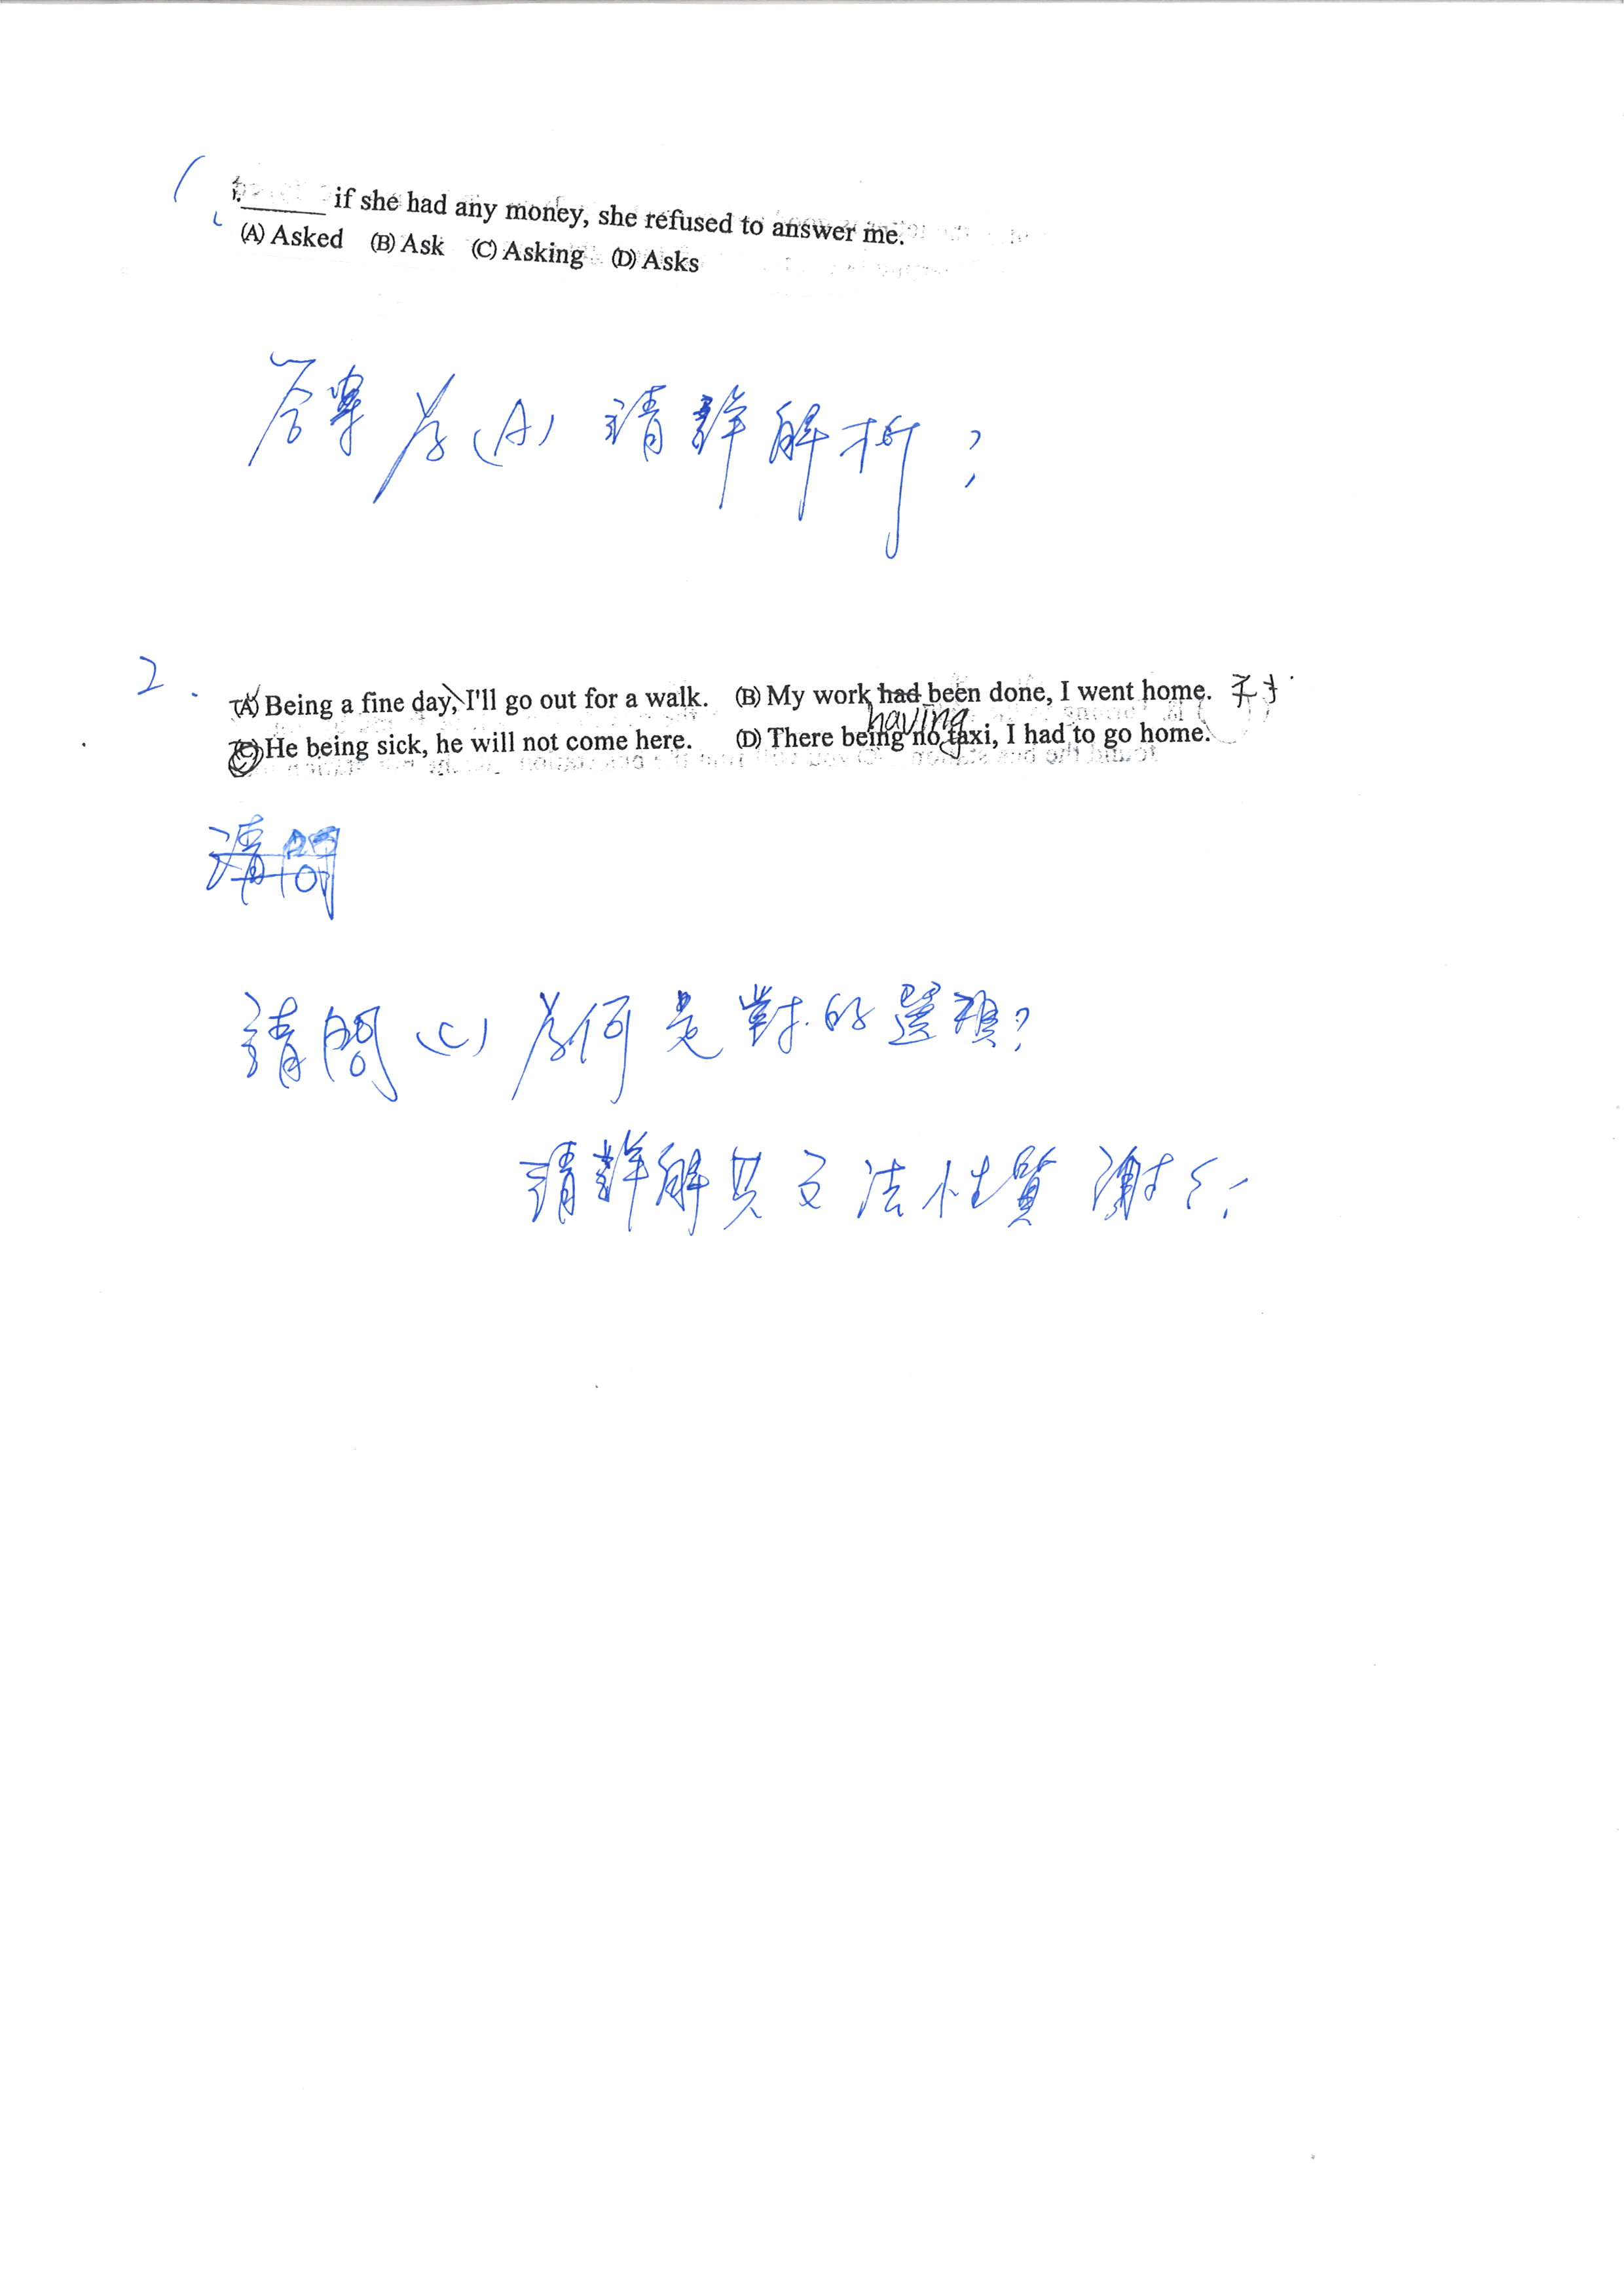 1. ______ if she had any money, she refused to answer me.
(A) Asked (B) Ask (C) Asking (D) Asks
答案為(A) 請詳解析?
2. (A) Being a fine day, I'll go out for a walk. (B) My work had been done, I went home.
having
(C) He being sick, he will not come here. (D) There being no taxi, I had to go home.
請問
請問(C)為何是對的選項?
請詳解其文法性質 謝謝!